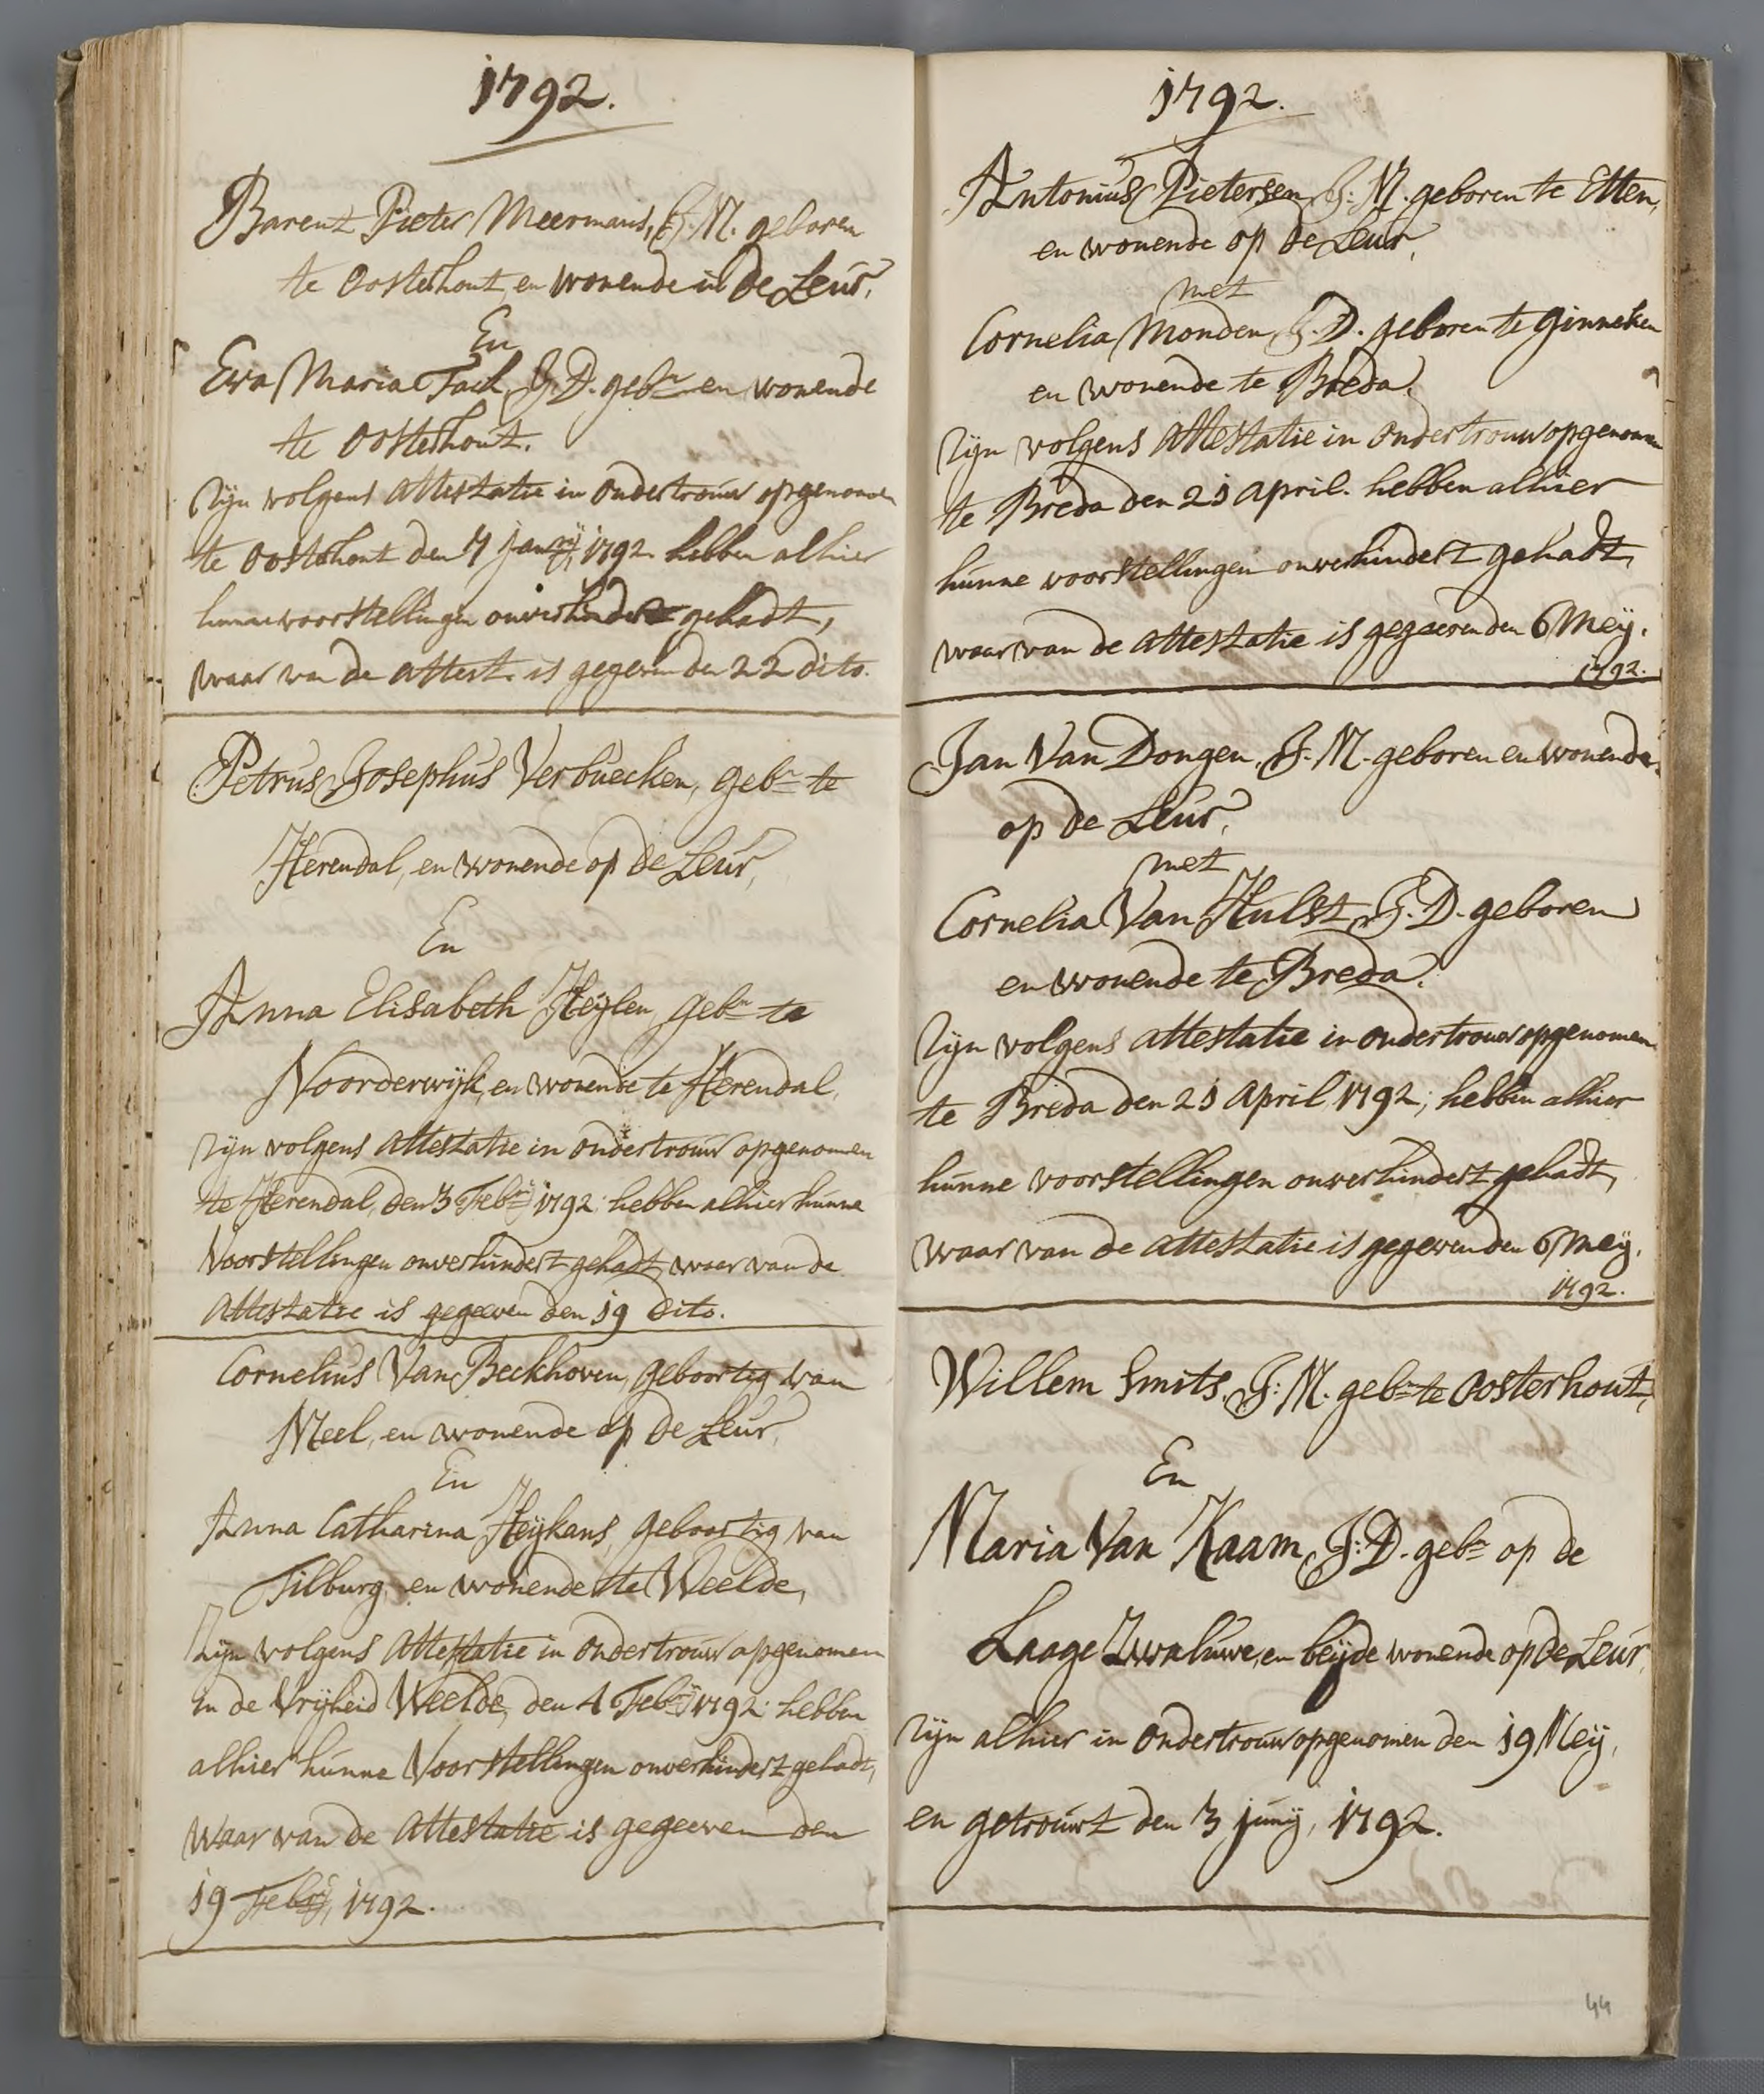 1792.
Barent Pieter Meermans, J. M. geboren
te Oosterhout, en wonende in de Leur,
En
Eva Maria Tack, J. D. gebn en wonende
te Oosterhout.
zijn volgens attestatie in ondertrouw opgenomen
te Oosterhout den 7 Janrij 1792. hebben alhier
hunne voorstellingen onverhindert gehadt,
waar van de attest. is gegeven den 22 dito.
Petrus Josephus Verbuecken, gebn te
Herendal, en wonende op de Leur,
En
Anna Elisabeth Heijlen, gebn te
Noorderwijk, en wonende te Herendal,
zijn volgens attestatie in ondertrouw opgenomen
te Herendal, den 3 Febrij 1792: hebben alhier hunne
Voorstellingen onverhindert gehadt, waar van de
Attestatie is gegeeven den 19 dito.
Cornelius Van Beckhoven, geboortig van
Meel, en wonende op de Leur,
En
Anna Catharina Heijkans, geboortig van
Tilburg, en wonende te Weelde,
Zijn volgens attestatie in ondertrouw opgenomen
in de Vrijheid Weelde, den 4 Febrij 1792: hebben
alhier hunne Voorstellingen onverhindert gehadt,
waar van de attestatie is gegeeven den
19 Febrij, 1792.
1792.
Antonius Pietersen, J: M. geboren te Etten,
en wonende op de Leur,
met
Cornelia Monden, J. D. geboren te Ginneken
en wonende te Breda.
zijn volgens attestatie in ondertrouw opgenomen
te Breda den 21 april. hebben alhier
hunne voorstellingen onverhindert gehadt,
waar van de attestatie is gegeeven den 6 Meij.
1792.
Jan Van Dongen, J. M. geboren en wonende
op de Leur,
met
Cornelia Van Hulst, J. D. geboren
en wonende te Breda.
zijn volgens attestatie in ondertrouw opgenomen
te Breda den 21 april 1792; hebben alhier
hunne voorstellingen onverhindert gehadt,
waar van de attestatie is gegeven den 6 Meij.
1792.
Willem Smits, J: M. gebn te Oosterhout,
En
Maria Van Kaam, J: D. gebn op de
Laage Zwaluwe, en beijde wonende op de Leur,
zijn alhier in ondertrouw opgenomen den 19 Meij,
en getrouwt den 3 junij, 1792.
44